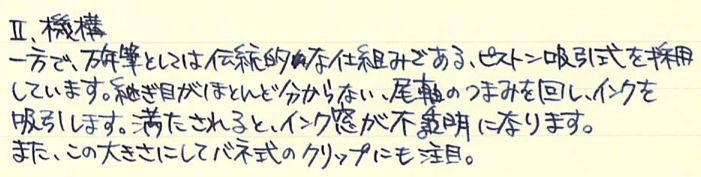 Ⅱ、機構
一方で、万年筆としては伝統的な仕組みである、ピストン吸引式を採用
しています。継ぎ目がほとんど分からない、尾軸のつまみを回し、インクを
吸引します。満たされると、インク窓が不透明になります。
また、この大きさにしてバネ式のクリップにも注目。